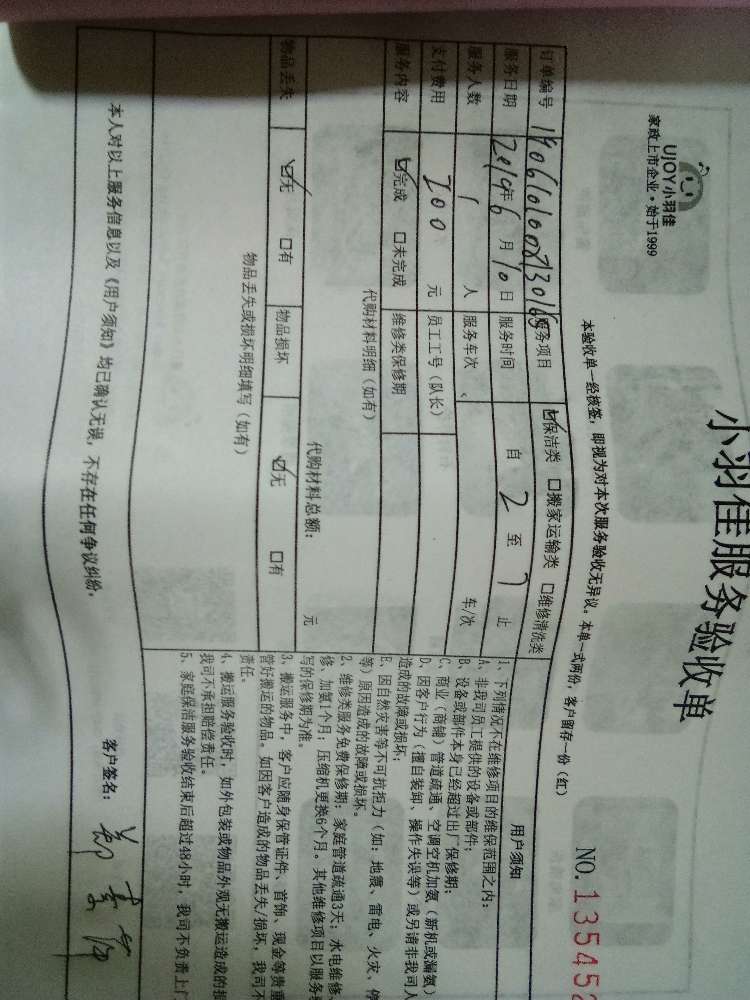 小羽佳服务验收单
NO.135452
UJOY小羽佳
家政上市企业·始于1999
本验收单一经核签，即视为对本次服务验收无异议。本单一式两份，客户留存一份（红）
订单编号 服务项目 ☑保洁类 □搬家运输类 □维修清洗类
服务日期 2019年6月10日 服务时间 自 2 至 7 止
服务人数 1 人 服务车次 、 车/次
支付费用 200 元 员工工号（队长）
服务内容 ☑完成 □未完成 维修类保修期
代购材料明细（如有）
代购材料总额： 元
物品丢失 ☑无 □有 物品损坏 ☑无 □有
物品丢失或损坏明细填写（如有）
用户须知
1、下列情况不在维修项目的维保范围之内：
A、非我司员工提供的设备或部件；
B、设备或部件本身已经超过出厂保修期；
C、商业（商铺）管道疏通、空调空机加氨（新机或漏氨）
D、因客户行为（擅自装卸、操作失误等）或另请非我司人
造成的故障或损坏；
E、因自然灾害等不可抗拒力（如：地震、雷电、火灾、停
等）原因造成的故障或损坏。
2、维修类服务免费保修期：家庭管道疏通3天；水电维修、
修、加氨1个月；压缩机更换6个月。其他维修项目以服务
写的保修期为准。
3、搬运服务中，客户应随身保管证件、首饰、现金等贵重
管好搬运的物品。如因客户造成的物品丢失/损坏，我司不
责任。
4、搬运服务验收时，如外包装或物品外观无搬运造成的损
我司不承担赔偿责任。
5、家庭保洁服务验收结束后超过48小时，我司不负责上门
本人对以上服务信息以及《用户须知》均已确认无误，不存在任何争议纠纷，
客户签名：